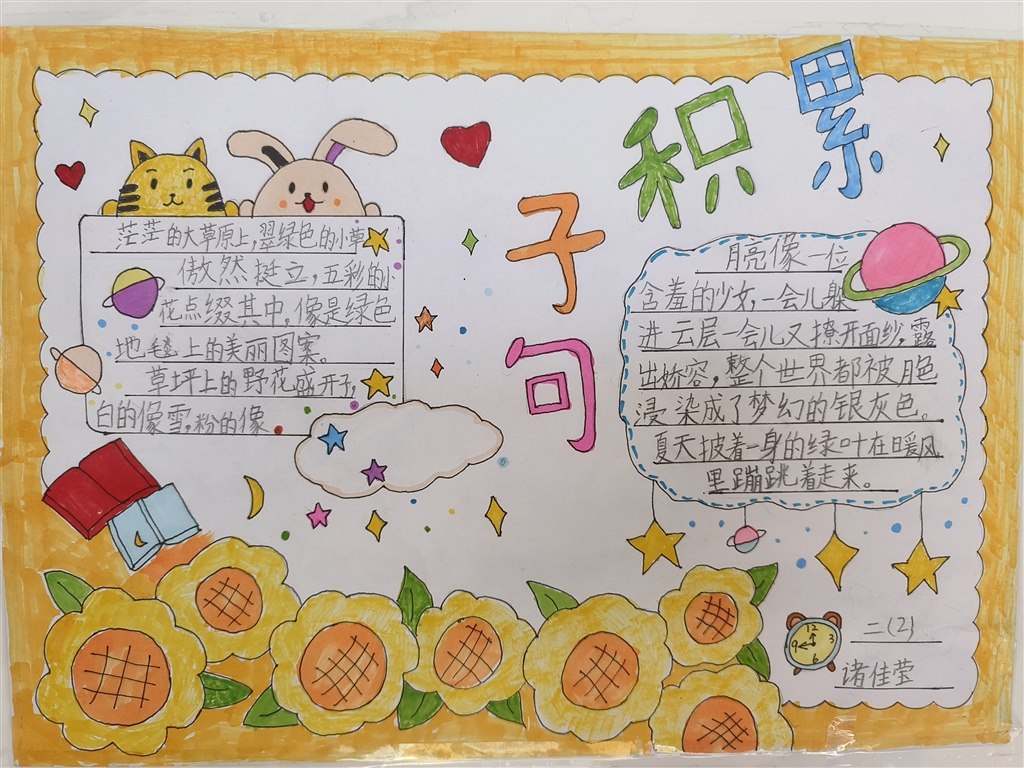 句子积累
茫茫的大草原上，翠绿色的小草
傲然挺立，五彩的小
花点缀其中，像是绿色
地毯上的美丽图案。
草坪上的野花盛开了，
白的像雪，粉的像
月亮像一位
含羞的少女，一会儿躲
进云层一会儿又撩开面纱，露
出娇容，整个世界都被月色
浸染成了梦幻的银灰色。
夏天披着一身的绿叶在暖风
里蹦跳着走来。
12
3
6
9
二（2）
诸佳莹